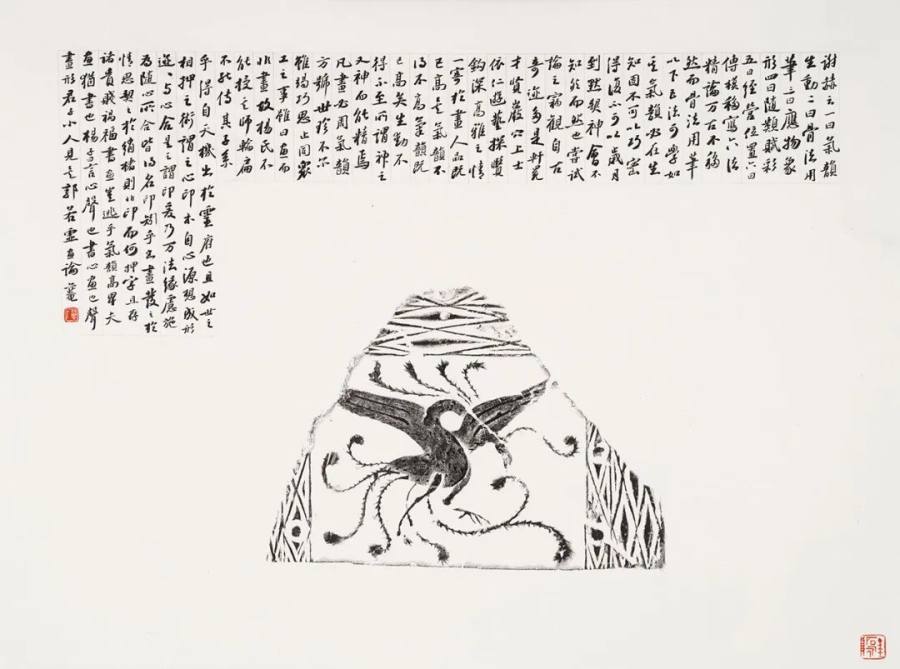 謝赫云一曰氣韻
生動二曰骨法用
筆三曰應物象
形四曰隨類賦彩
五曰經營位置六曰
傳模移寫六法
精論万古不移
然而骨法用筆
以下五法可學如
其氣韻必在生
知固不可以巧密
得復不可以歲月
到默契神會不
知然而然也嘗試
論之竊觀自古
奇迹多是軒冕
才賢巖穴上士
依仁遊藝探賾
鉤深高雅之情
一寄於畫人品既
已高矣氣韻不
得不高氣韻既
已高矣生動不
得不至所謂神之
又神而能精焉
凡畫必周氣韻
方號世珍不尔
雖竭巧思止同眾
工之事雖曰畫而
非畫故楊氏不
能授其師輪扁
不能傳其子系
乎得自天機出於靈府也且如世之
相押之術謂之心印本自心源想成形
迹迹與心合是之謂印爰乃万法緣慮施
為隨心所合皆得名印矧乎書畫發之於
情思契之於綃楮則非印而何押字且存
諸貴賤禍福書畫豈逃乎氣韻高卑夫
畫猶書也楊子言心聲也書心畫也聲
畫形君子小人見矣郭若虛畫論